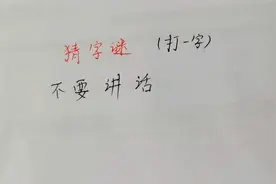 猜字谜 (打一字)
不要讲话